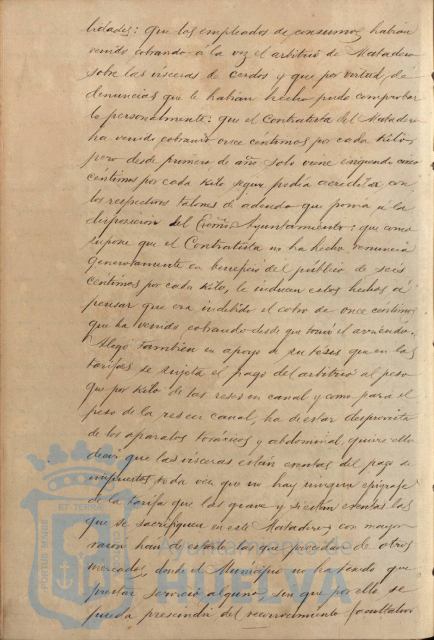 biedades: que los empleados de consumos, habian
venido cobrando á la vez el arbitrio de Matadero
sobre las visceras de cerdos y que por virtud, de
denuncias que le habian hecho pudo comprobar
lo personalmente: que el Contratista del Matadero
ha venido cobrando once centimos por cada Kilo,
pero desde primero de año solo viene exigiendo cinco
centimos por cada Kilo segun podia acreditar con
los respectivos talones de adeudo que ponia á la
disposicion del Excmo Ayuntamiento: que como
supone que el Contratista no ha hecho renuncia
generosamente en beneficio del público de seis
centimos por cada Kilo, le inducen estos hechos á
pensar que era indebido el cobro de once centimos
que ha venido cobrando desde que tomó el arriendo.
Alegó tambien en apoyo de su tesis que en las
tarifas se sujeta el pago del arbitrio al peso
que por Kilo de las reses en canal y como para el
peso de la res en canal, ha de estar desprovista
de los aparatos torácico y abdominal, quiere ello
decir que las visceras están exentas del pago de
impuestos toda vez que no hay ningun epigrafe
de la tarifa que las grave y si están exentas las
que se sacrifiquen en este Matadero con mayor
razon han de estarlo las que procedan de otros
mercados, donde el Municipio no ha tenido que
prestar servicio alguno, sin que por ello se
pueda prescindir del reconocimiento facultativo
ET TERRA
PORTUS MARIS
Ayuntamiento de
HUELVA